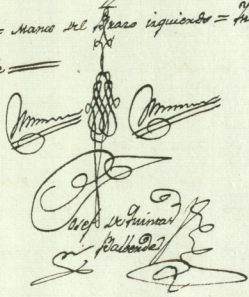 = Manco del Brazo izquierdo =
Josef de Quintas
Balbende